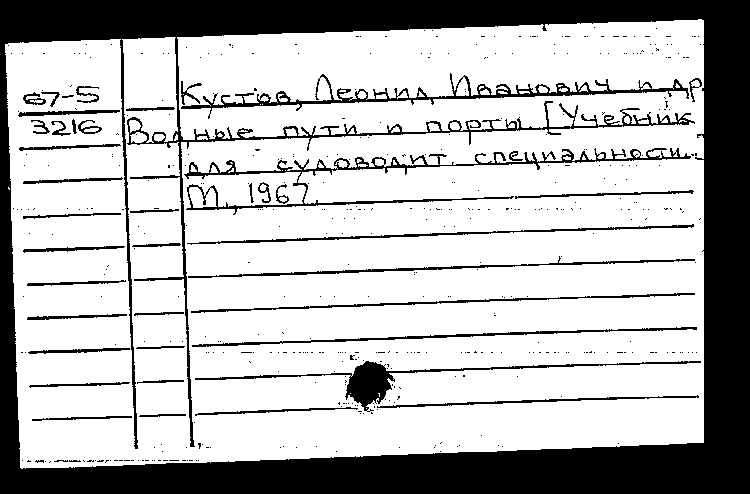 67-5 Кустов, Леонид Иванович и др.
3216 Водные пути и порты. [Учебник
для судоводит. специальности.]
М., 1967.